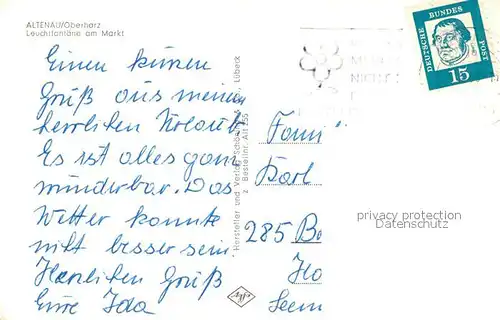 ALTENAU/Oberharz
Leuchtfontäne am Markt
Einen kurzen
Gruß aus meinem
herrlichen Urlaub.
Es ist alles ganz
wunderbar. Das
Wetter konnte
nicht besser sein
Herzlichen Gruß
Eure Ida
Hersteller und Verlag Schöning & Co., Lübeck
Bestellnr. Alt 255
Agfa
DEUTSCHE BUNDESPOST
15
NICHT
Fam
Karl
285 B
privacy protection
Datenschutz